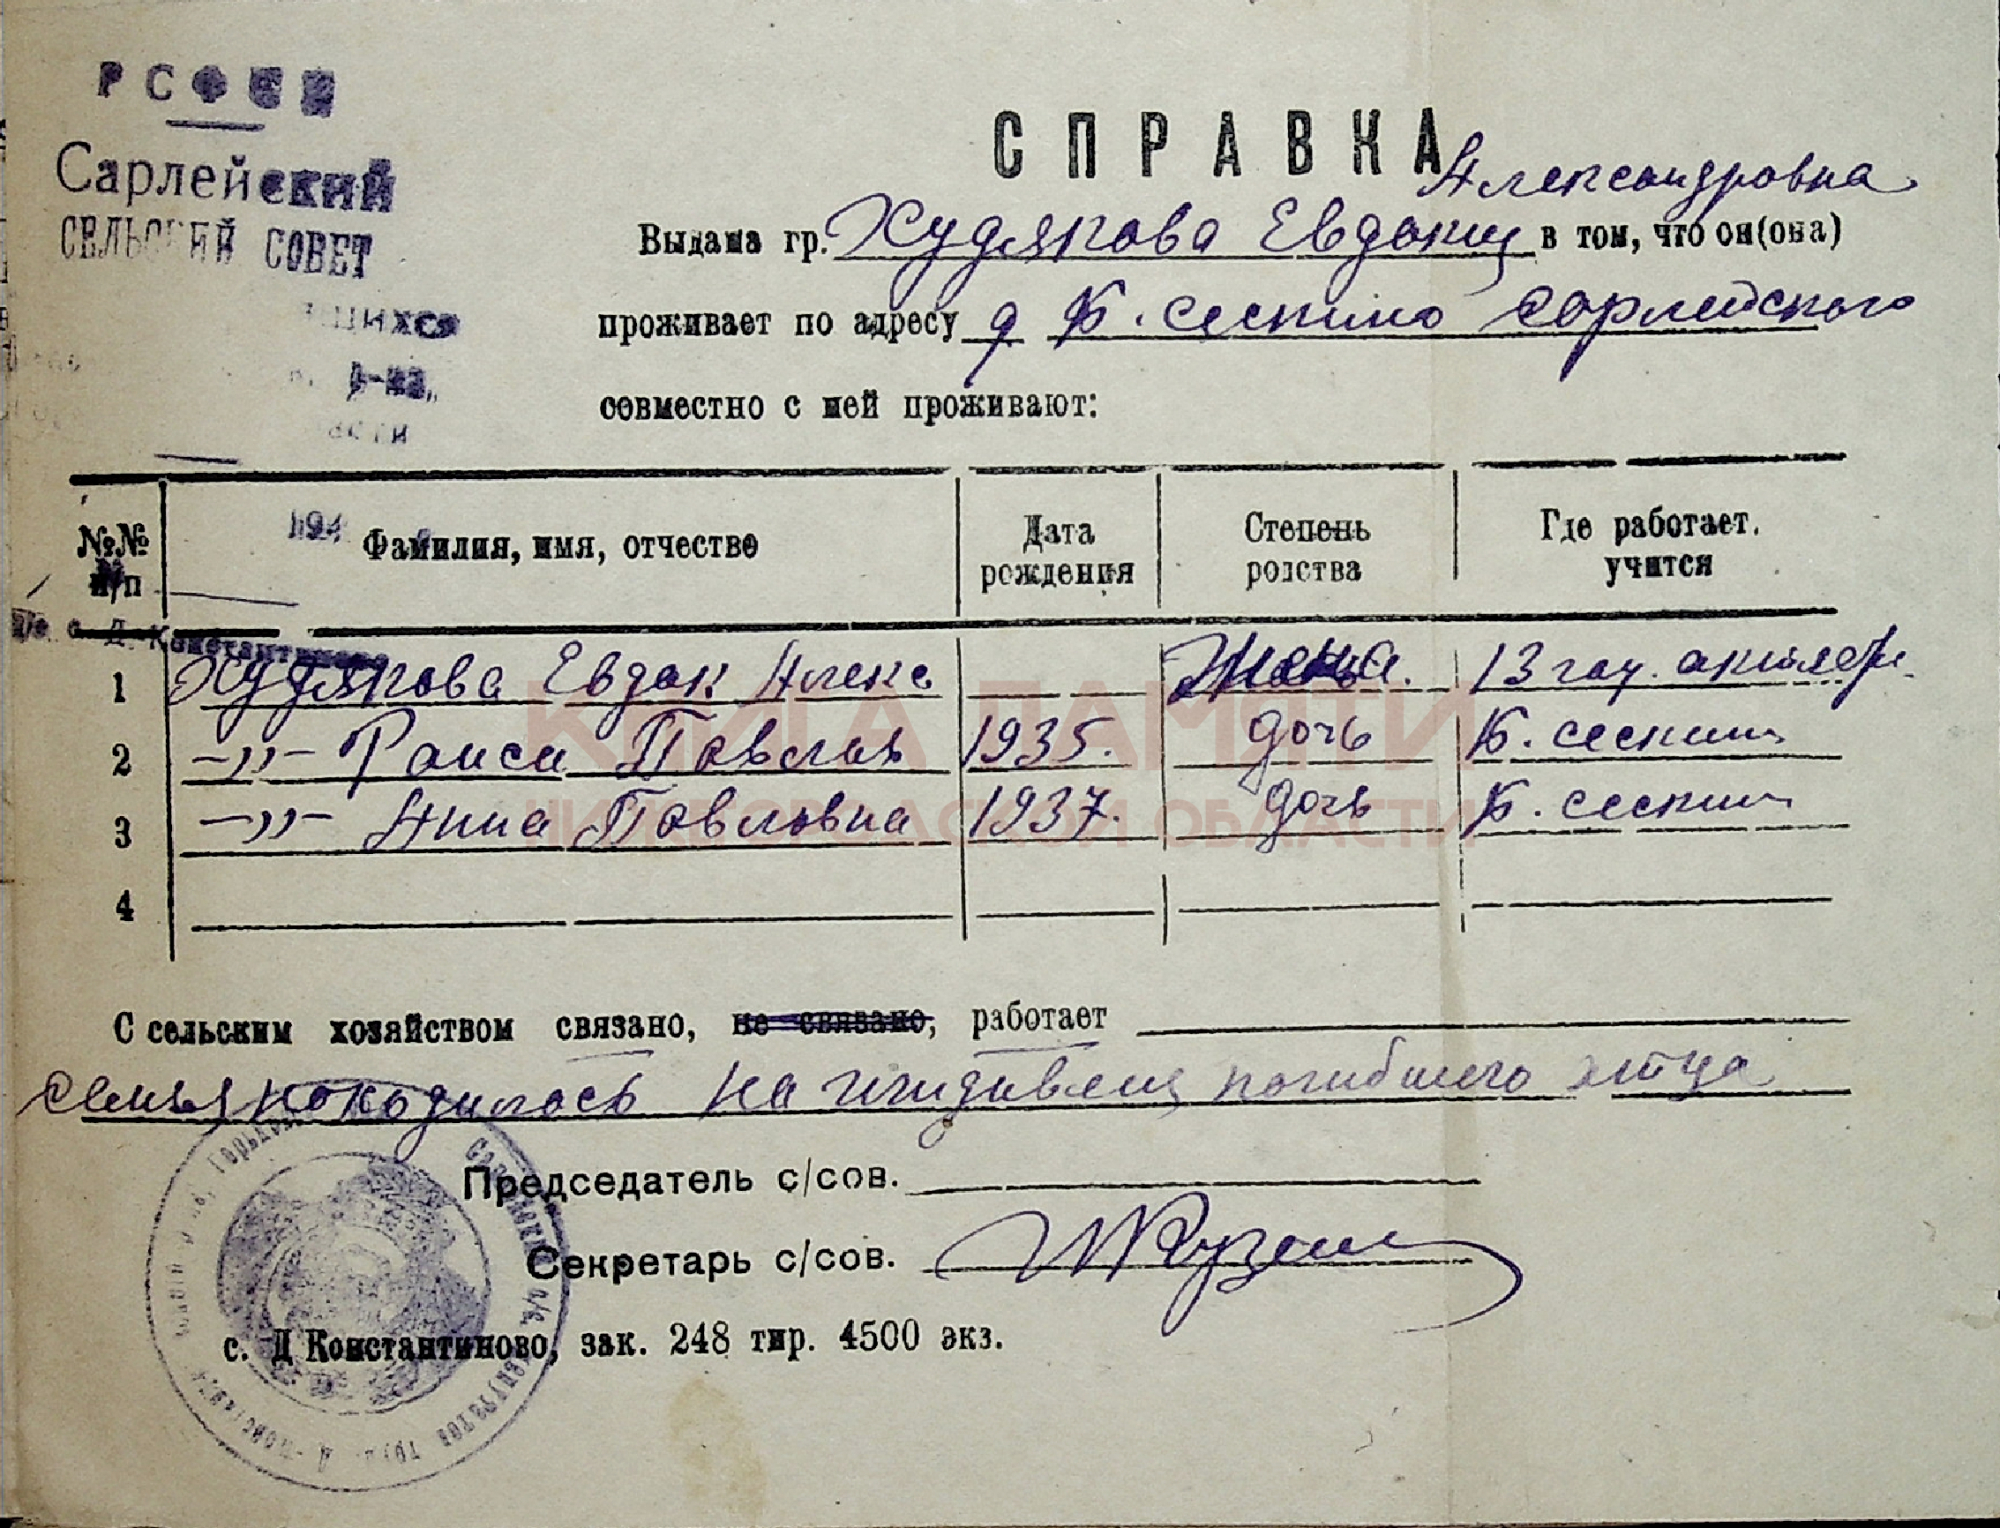 РСФСР
Сарлейский
СЕЛЬСКИЙ СОВЕТ
СПРАВКА
Александровна
Выдана гр. Худякова Евдоки в том, что он(она)
проживает по адресу д К. сескино Сарлейского
совместно с ней проживают:
№№ п/п Фамилия, имя, отчество Дата рождения Степень родства Где работает. учится
Д. Константиново
1 Худякова Евдок Алекс Жена. 13 год. октябр.
2 -„- Раиса Павловн 1935. дочь К. сескин
3 -„- Анна Павловна 1937. дочь К. сескин
4
КНИГА ПАМЯТИ
НИЖЕГОРОДСКОЙ ОБЛАСТИ
С сельским хозяйством связано, не связано, работает
семья находилась на иждивени погибшего отца
Председатель с/сов.
Секретарь с/сов.
с. Д Константиново, зак. 248 тир. 4500 экз.